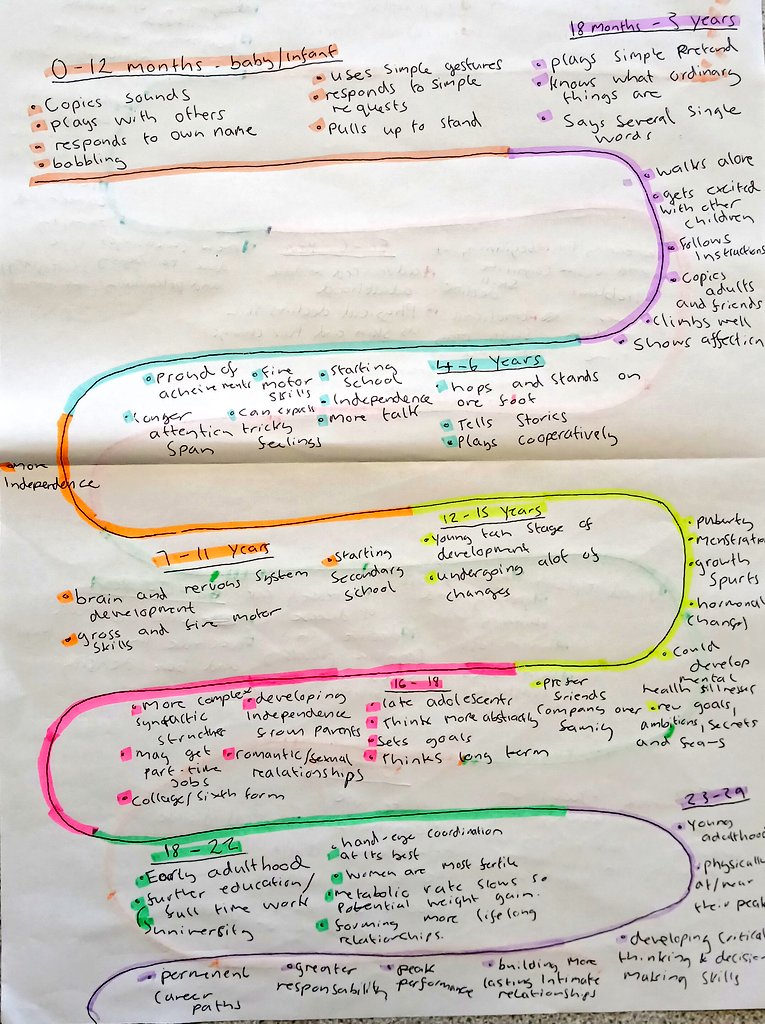 0-12 months. baby/infant
Copies sounds
plays with others
responds to own name
babbling
uses simple gestures
responds to simple
requests
pulls up to stand
18 months - 3 years
plays simple pretend
knows what ordinary
things are
Says several single
words
walks alone
gets excited
with other
children
Follows
Instructions
Copies
adults
and friends
climbs well
Shows affection
4-6 years
hops and stands on
one foot
Tells Stories
Plays cooperatively
starting
School
Independence
more talk
fine
motor
skills
can express
tricky
feelings
proud of
acheivements
longer
attention
span
more
Independence
7-11 years
brain and nervous system
development
gross and fine motor
skills
starting
Secondary
school
12-15 years
young teen stage of
development
undergoing alot of
changes
puberty
menstration
growth
spurts
hormonal
changes
Could
develop
mental
health illnesses
new goals,
ambitions, secrets
and fears
prefer
friends
company over
family
16-18
late adolescents
Think more abstractly
Sets goals
Thinks long term
developing
Independence
from parents
romantic/sexual
realationships
More complex
syntactic
structures
may get
part-time
jobs
Collage/sixth form
18-22
Early adulthood
further education/
full time work
university
hand-eye coordination
at its best
women are most fertile
metabolic rate slows so
Potential weight gain.
forming more lifelong
relationships.
23-29
Young
adulthood
physically
at/near
their peak
developing critical
thinking & decision
making skills
building more
lasting intimate
relationships
peak
performance
greater
responsability
permenent
career
paths